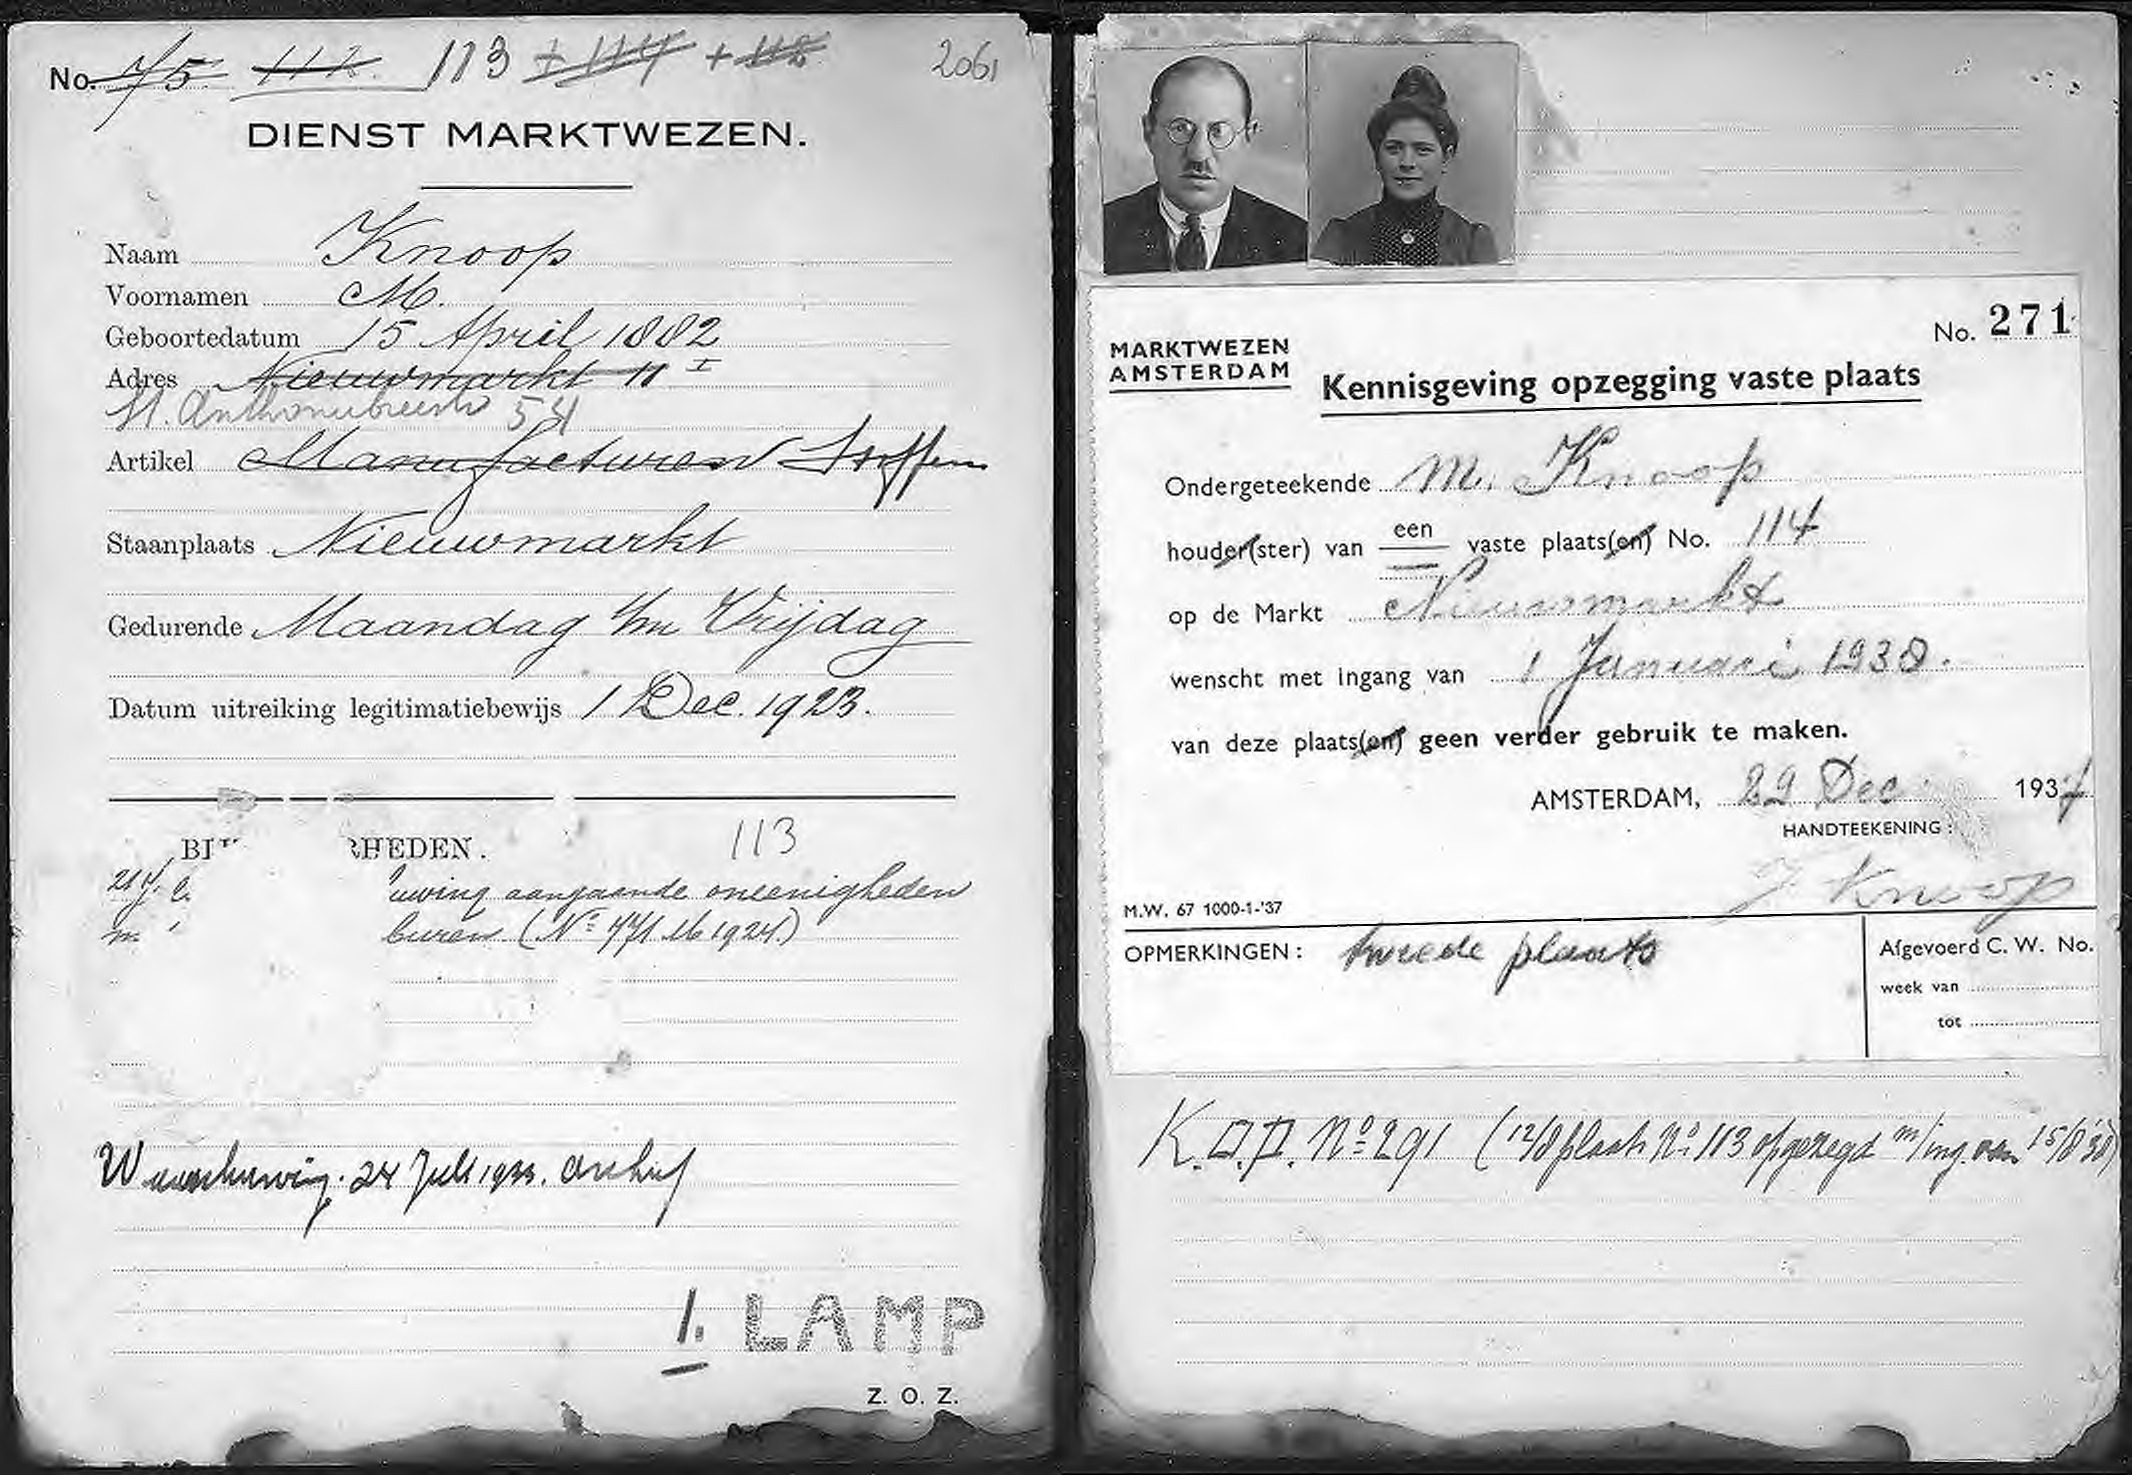 No. 75 112 113 + 114 + 112 206,
DIENST MARKTWEZEN.
Naam Knoop
Voornamen M.
Geboortedatum 15 April 1882
Adres Nieuwmarkt 11 I
St. Anthoniebreestr 54
Artikel Manufacturen Stoffen
Staanplaats Nieuwmarkt
Gedurende Maandag t/m Vrijdag
Datum uitreiking legitimatiebewijs 1 Dec. 1923.
BI RHEDEN. 113
uwing aangaande oneenigheden
buren (No 471 M 1924.)
Waarschuwing. 24 Juli archief
1. LAMP
Z. O. Z.
MARKTWEZEN
AMSTERDAM
No. 271
Kennisgeving opzegging vaste plaats
Ondergeteekende M. Knoop
houder(ster) van een vaste plaats(en) No. 114
op de Markt Nieuwmarkt
wenscht met ingang van 1 Januari 1938.
van deze plaats(en) geen verder gebruik te maken.
AMSTERDAM, 29 Dec 1937
HANDTEEKENING:
J. Knoop
M.W. 67 1000-1-'37
OPMERKINGEN: tweede plaats
Afgevoerd C. W. No.
week van
tot
K.O.P. No 291 (12/8 plaats No 113 opgezegd m/ing. van 15/8 '38)